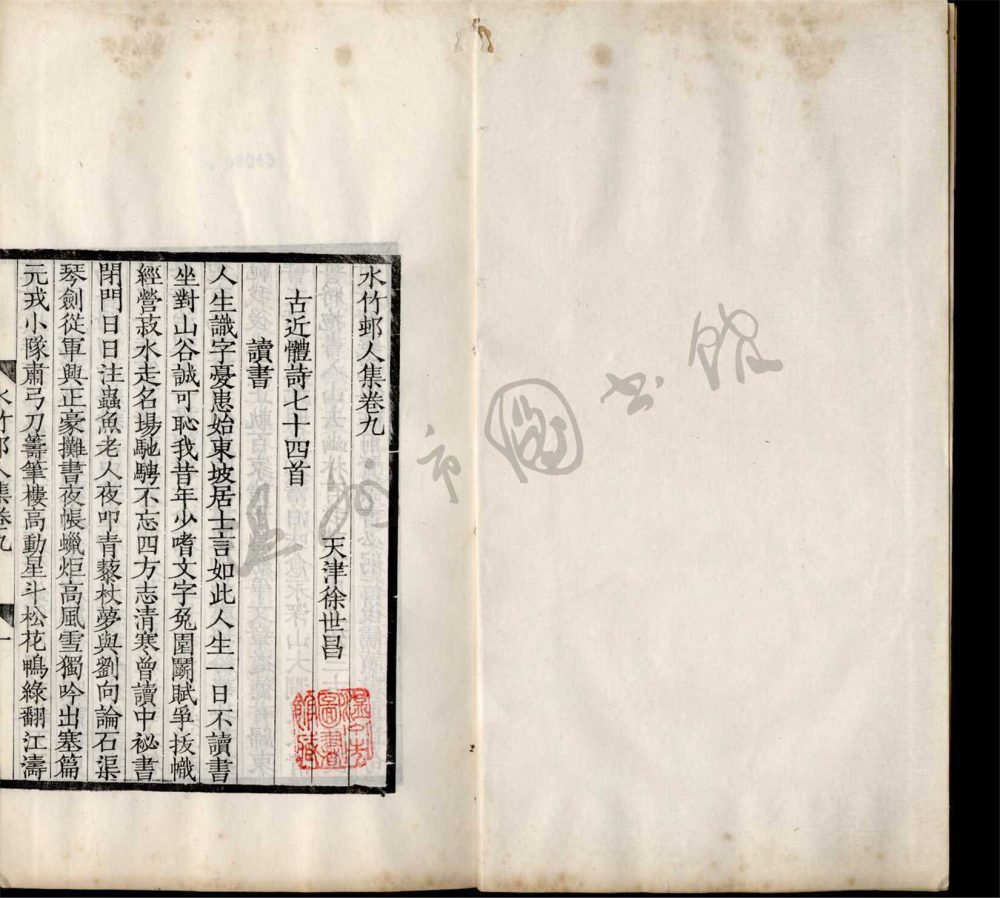 水竹邨人集卷九
天津徐世昌
古近體詩七十四首
讀書
人生識字憂患始東坡居士言如此人生一日不讀書
坐對山谷誠可恥我昔年少嗜文字兔園鬬賦爭拔幟
經營菽水走名場馳騁不忘四方志清寒曾讀中祕書
閉門日日注蟲魚老人夜叩青藜杖夢與劉向論石渠
琴劍從軍興正豪攤書夜帳蠟炬高風雪獨吟出塞篇
元戎小隊肅弓刀籌筆樓高動星斗松花鴨綠翻江濤
水竹邨人集卷九
一
市圖書館